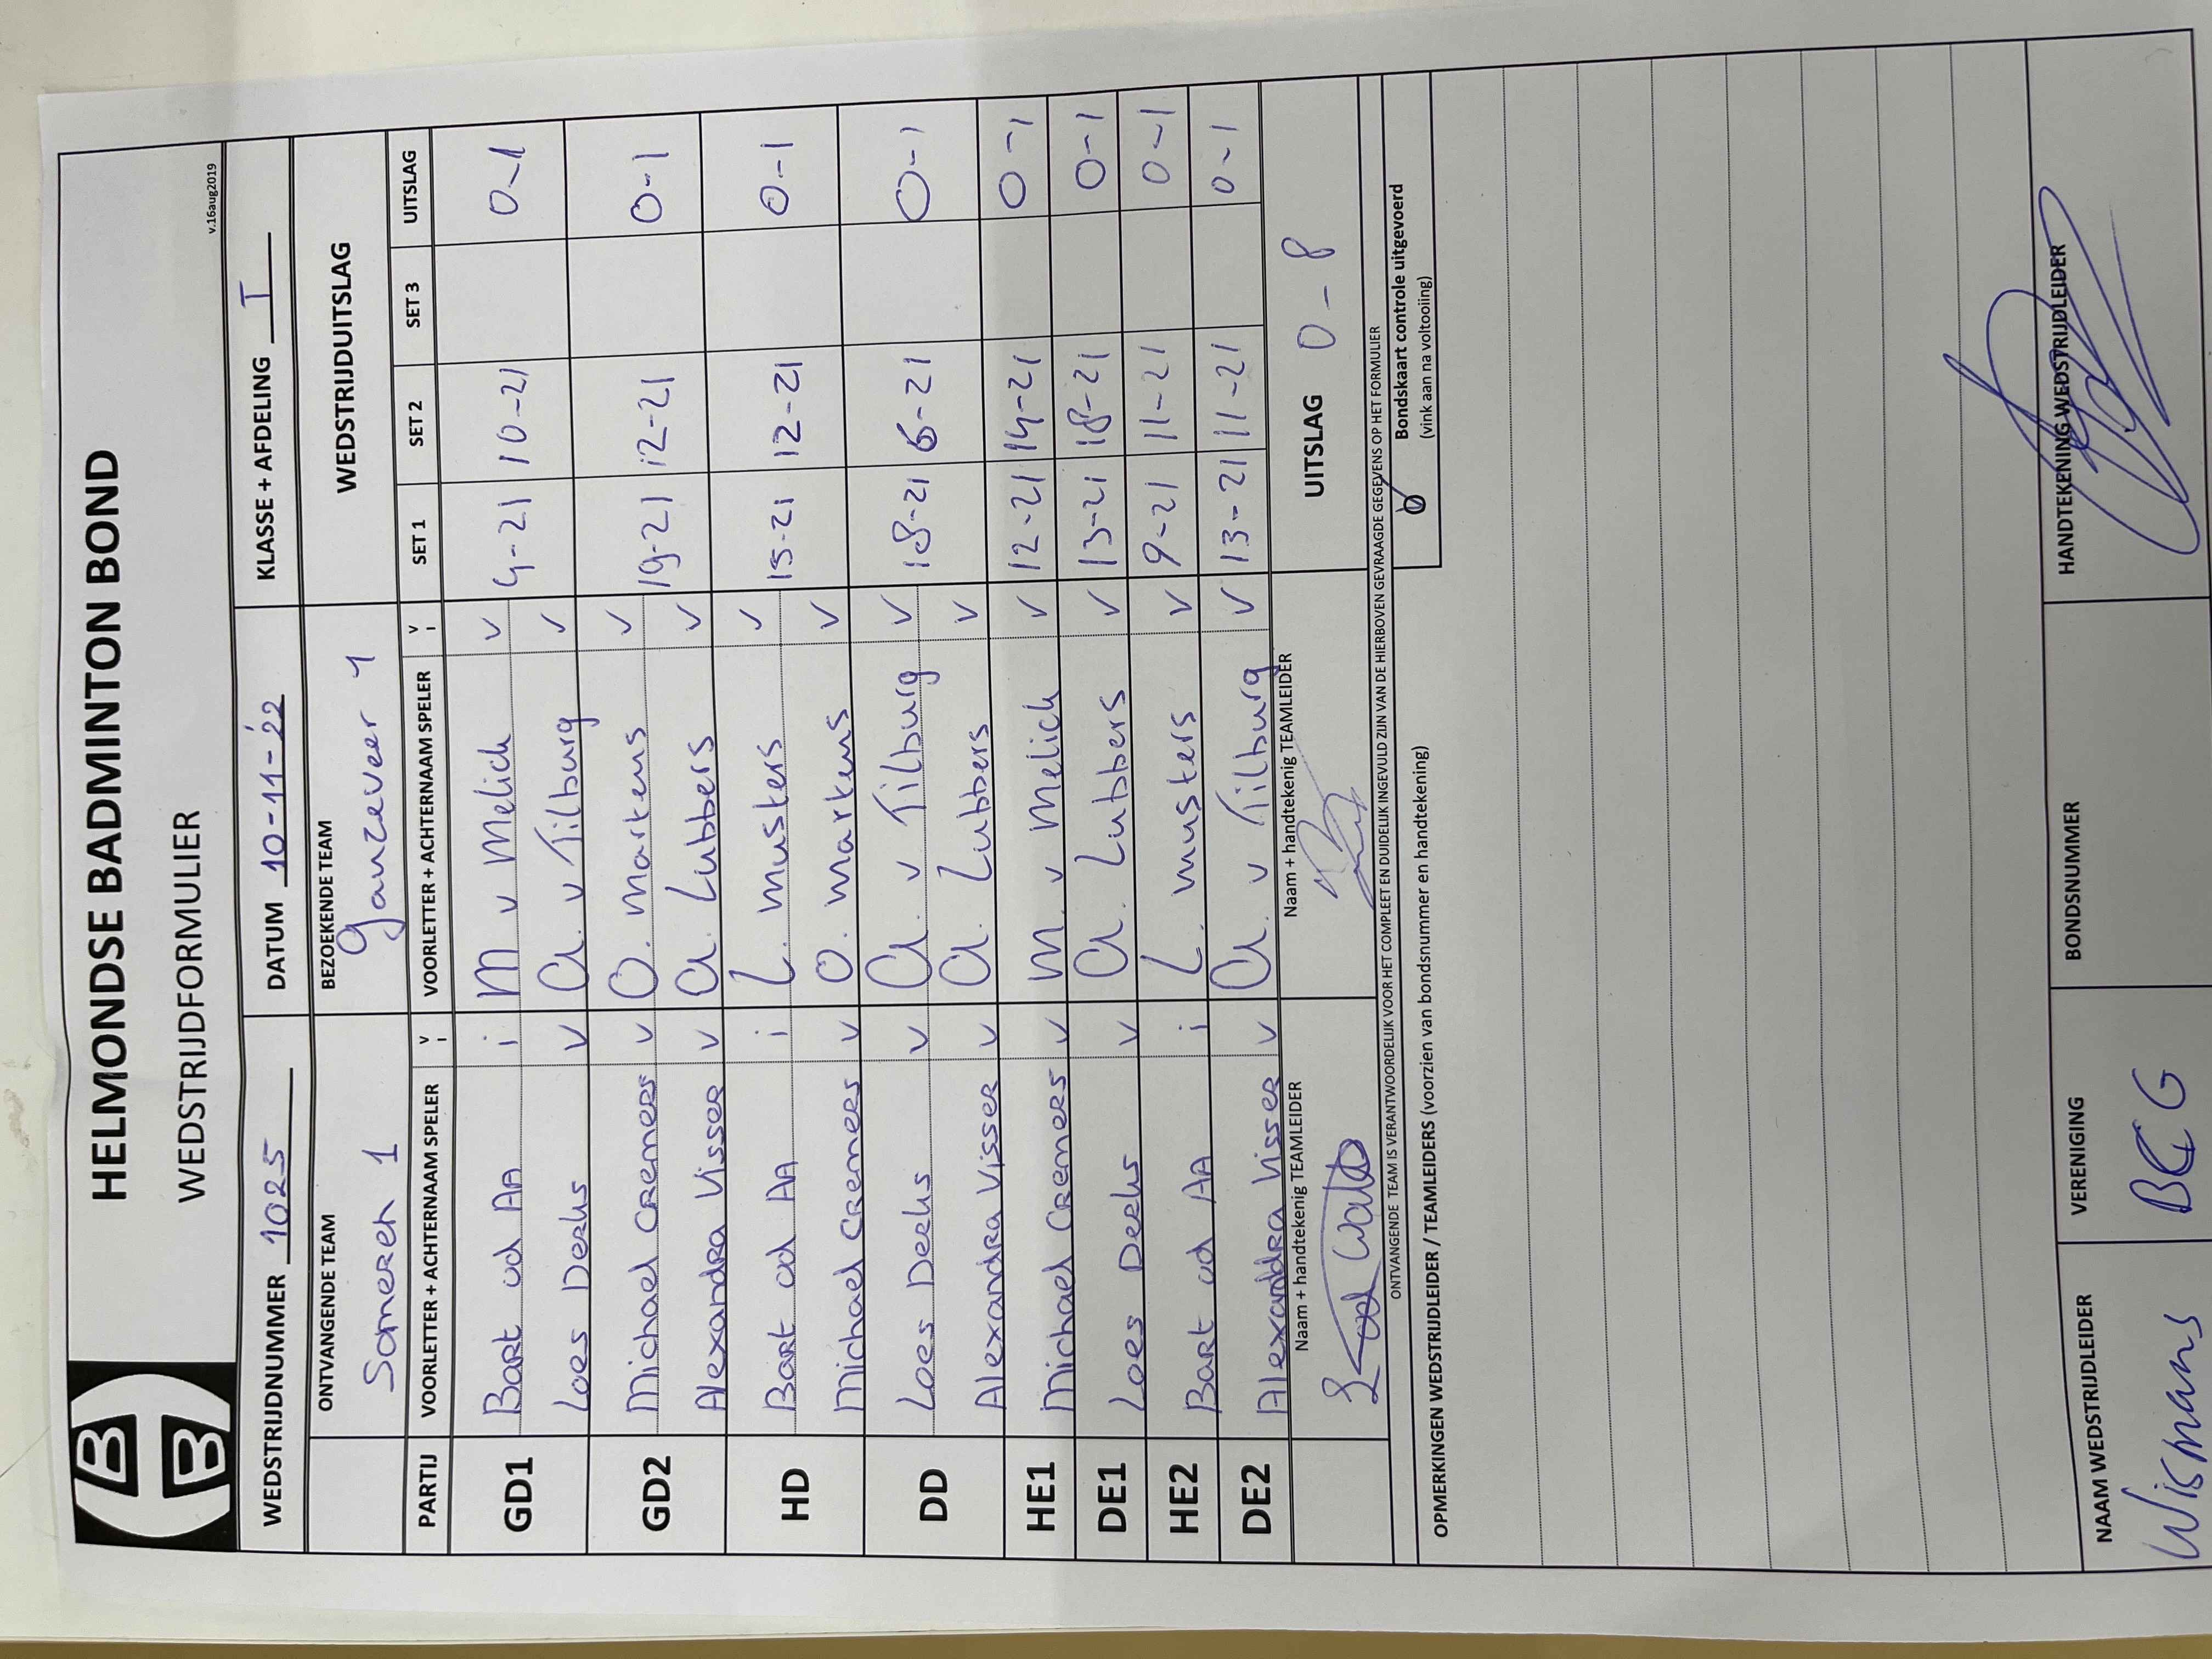 HELMONDSE BADMINTON BOND
WEDSTRIJDFORMULIER
v.16aug2019
WEDSTRIJDNUMMER 1025 DATUM 10-11-'22 KLASSE + AFDELING T
ONTVANGENDE TEAM BEZOEKENDE TEAM WEDSTRIJDUITSLAG
Someren 1 Ganzeveer 1
PARTIJ VOORLETTER + ACHTERNAAM SPELER V I VOORLETTER + ACHTERNAAM SPELER V I SET 1 SET 2 SET 3 UITSLAG
GD1 Bart vd AA i M v Melick v 4-21 10-21 0-1
Loes Derks v a. v Tilburg v
GD2 Michael Cremers v O. Markens v 19-21 12-21 0-1
Alexandra Visser v a. Lubbers v
HD Bart vd AA i L. musters v 15-21 12-21 0-1
Michael Cremers v O. markens v
DD Loes Derks v a. v Tilburg v 18-21 6-21 0-1
Alexandra Visser v a. Lubbers v
HE1 Michael Cremers v m. v Melick v 12-21 14-21 0-1
DE1 Loes Derks v a. Lubbers v 13-21 18-21 0-1
HE2 Bart vd AA i L. musters v 9-21 11-21 0-1
DE2 Alexandra Visser v a. v Tilburg v 13-21 11-21 0-1
Naam + handtekenig TEAMLEIDER Naam + handtekenig TEAMLEIDER UITSLAG 0-8
ONTVANGENDE TEAM IS VERANTWOORDELIJK VOOR HET COMPLEET EN DUIDELIJK INGEVULD ZIJN VAN DE HIERBOVEN GEVRAAGDE GEGEVENS OP HET FORMULIER
Bondskaart controle uitgevoerd
(vink aan na voltooiing)
OPMERKINGEN WEDSTRIJDLEIDER / TEAMLEIDERS (voorzien van bondsnummer en handtekening)
NAAM WEDSTRIJDLEIDER VERENIGING BONDSNUMMER HANDTEKENING WEDSTRIJDLEIDER
Wismans BCG